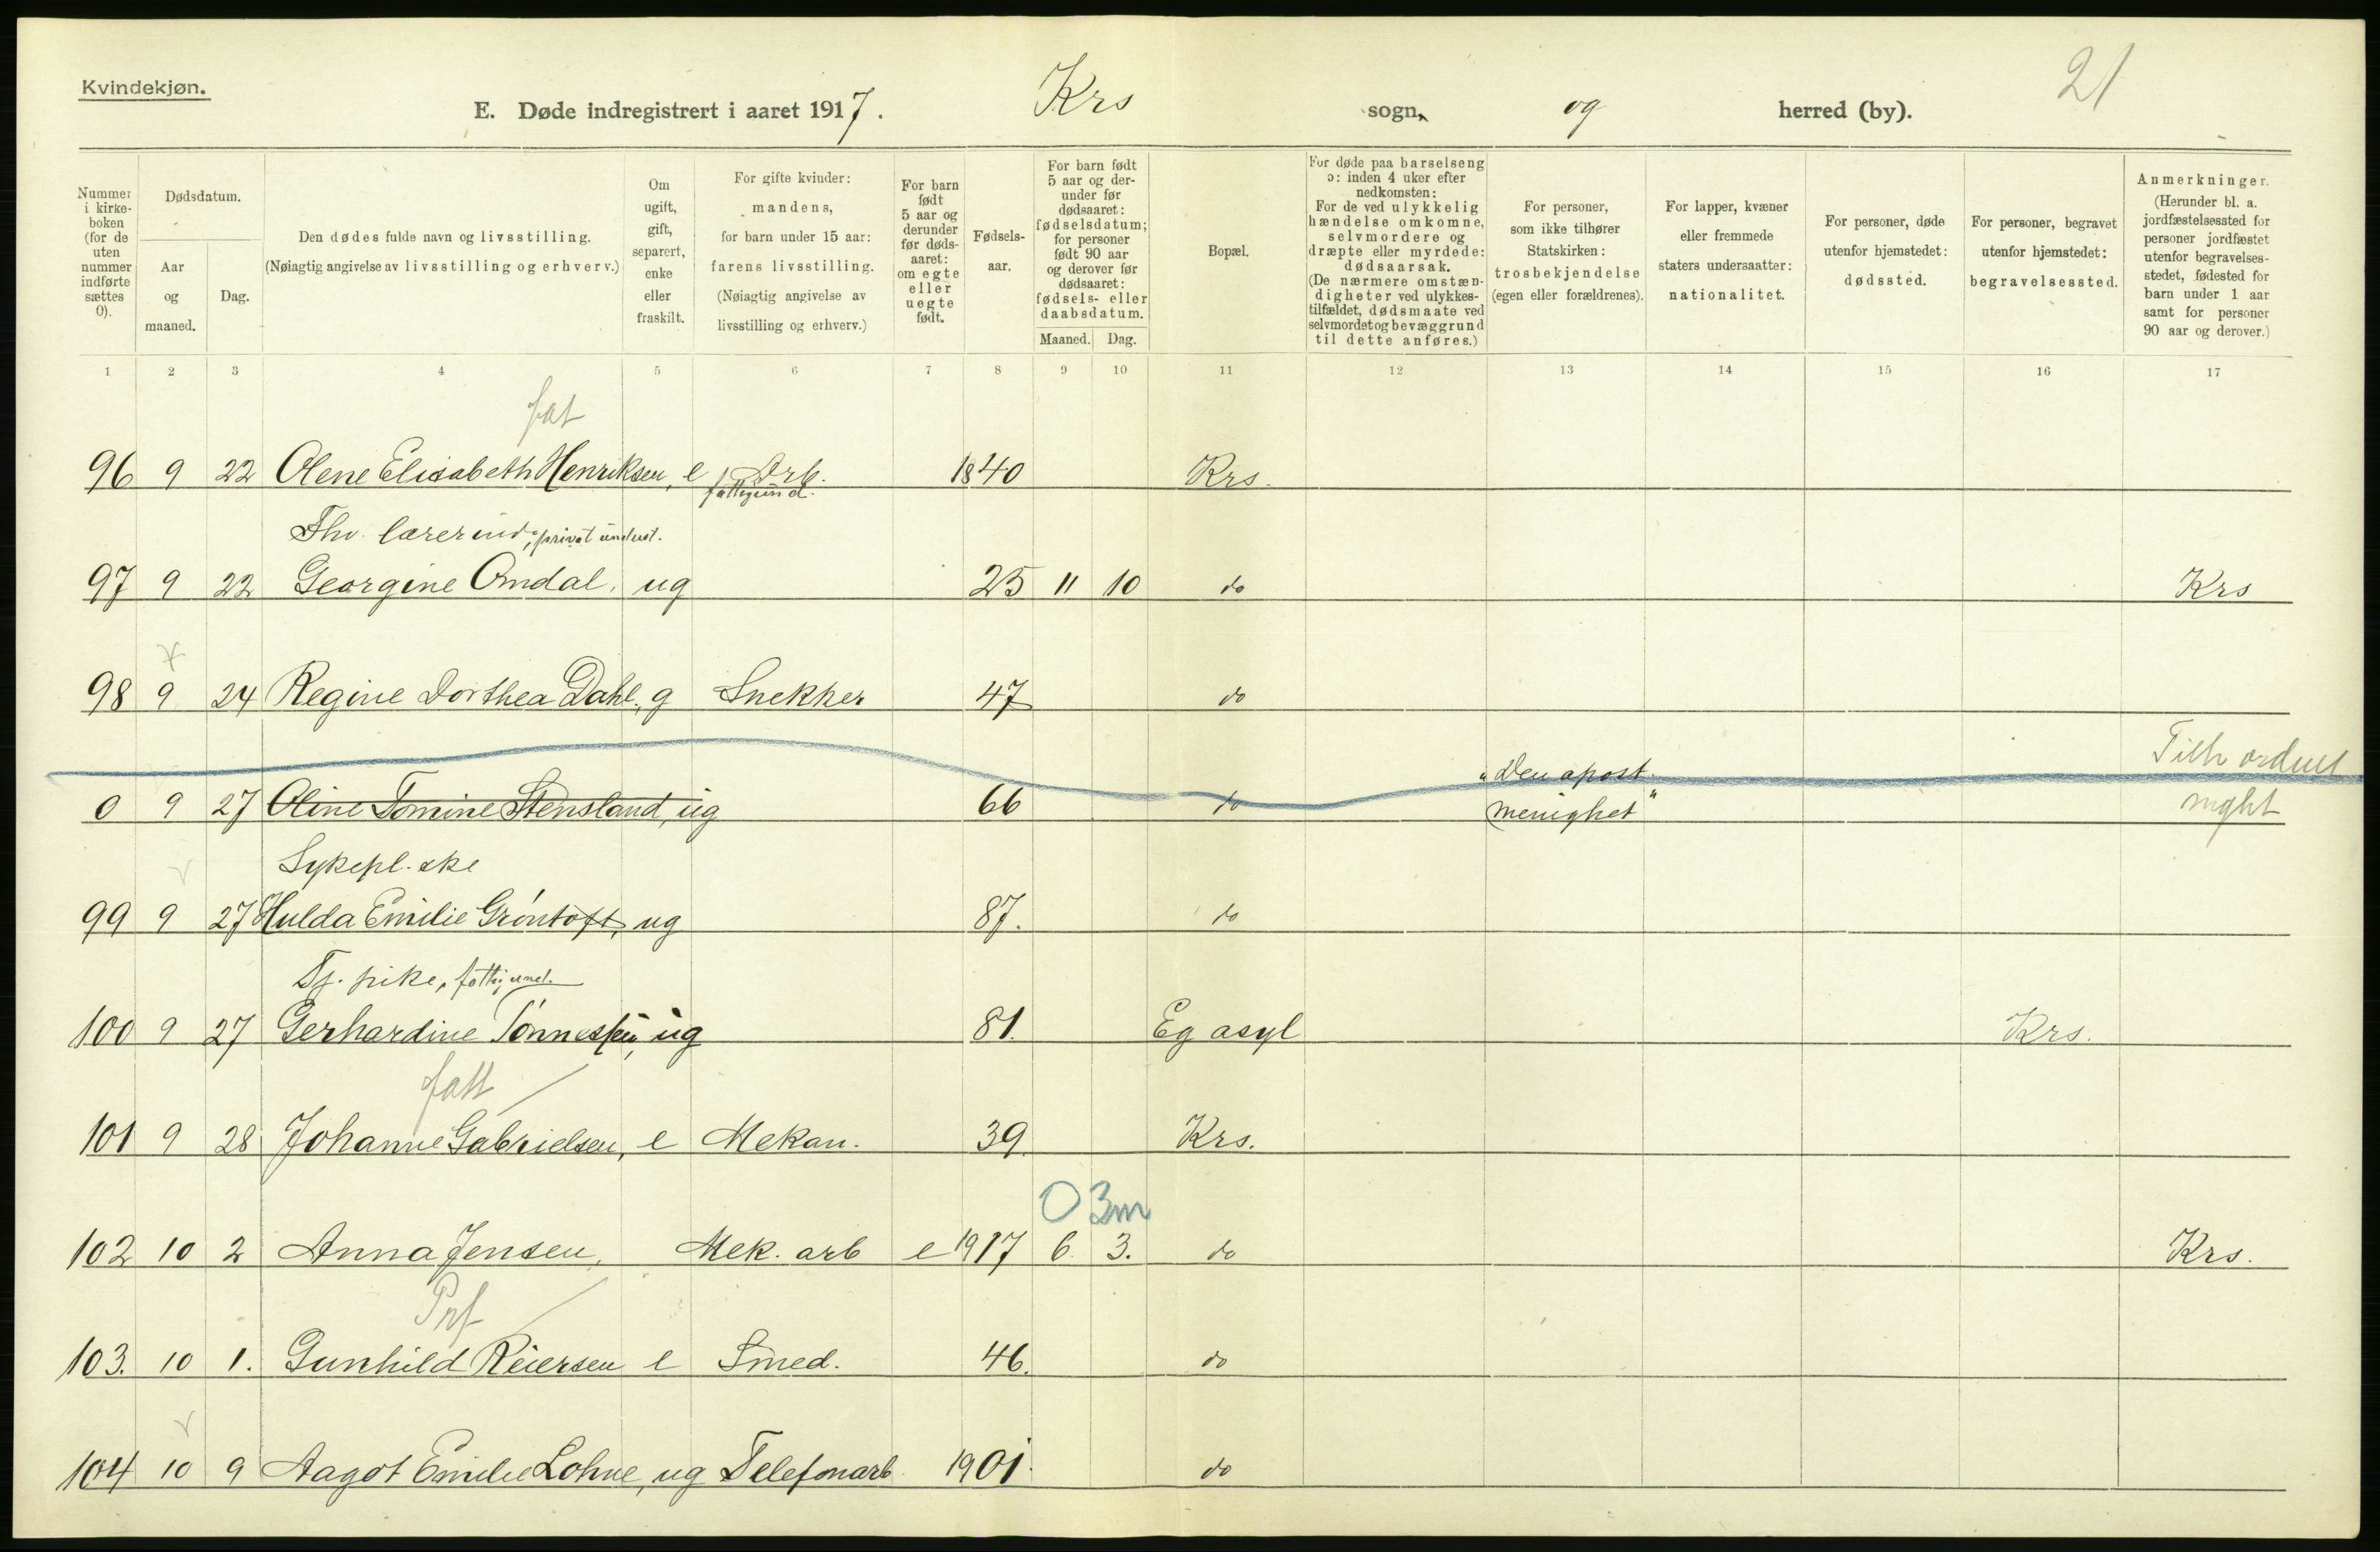 Kvindekjøn.
21
E. Døde indregistrert i aaret 1917. Krs sogn, og herred (by).
Nummer i kirke-boken (for de uten nummer indførte sættes 0).
Dødsdatum.
Aar og maaned.
Dag.
Den dødes fulde navn og livsstilling.
(Nøiagtig angivelse av livsstilling og erhverv.)
Om ugift, gift, separert, enke eller fraskilt.
For gifte kvinder: mandens, for barn under 15 aar: farens livsstilling. (Nøiagtig angivelse av livsstilling og erhverv.)
For barn født 5 aar og derunder før døds-aaret: om egte eller uegte født.
Fødsels-aar.
For barn født 5 aar og der-under før dødsaaret: fødselsdatum; for personer født 90 aar og derover før dødsaaret: fødsels- eller daabsdatum.
Maaned. Dag.
Bopæl.
For døde paa barselseng ɔ: inden 4 uker efter nedkomsten: For de ved ulykkelig hændelse omkomne, selvmordere og dræpte eller myrdede: dødsaarsak. (De nærmere omstæn-digheter ved ulykkes-tilfældet, dødsmaate ved selvmordet og bevæggrund til dette anføres.)
For personer, som ikke tilhører Statskirken: trosbekjendelse (egen eller forældrenes).
For lapper, kvæner eller fremmede staters undersaatter: nationalitet.
For personer, døde utenfor hjemstedet: dødssted.
For personer, begravet utenfor hjemstedet: begravelsessted.
Anmerkninger. (Herunder bl. a. jordfæstelsessted for personer jordfæstet utenfor begravelses-stedet, fødested for barn under 1 aar samt for personer 90 aar og derover.)
1 2 3 4 5 6 7 8 9 10 11 12 13 14 15 16 17
fat
96 9 22 Olene Elisabeth Henriksen, e Arb. 1840 Krs.
fattigund.
Fhv. lærerind, privat underst.
97 9 22 Georgine Omdal, ug 25 11 10 do Krs
98 9 24 Regine Dorthea Dahl, g Snekker 47 do
"Den apost. Tilh ordnet
0 9 27 Oline Tomine Stensland, ug 66 do menighet" mght
Sykepl.ske
99 9 27 Hulda Emilie Grøntoft, ug 87. do
Tj. pike, fattigund.
100 9 27 Gerhardine Tønnessen, ug 81. Eg asyl Krs.
fatt
101 9 28 Johanne Gabrielsen, e Mekan. 39. Krs.
0 3m
102 10 2 Anna Jensen, Mek. arb e 1917 6. 3. do Krs.
Prf
103. 10 1. Gunhild Reiersen e Smed. 46. do
104 10 9 Aagot Emilie Lohne, ug Telefonarb. 1901. do